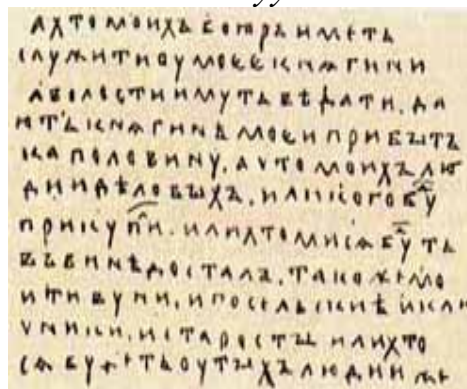 АХТОМОИХЪ БОꙖРЪ ИМЕТЬ
СЛУЖИТИОУМОЕЕКНѦГИНИ
АВОЛОСТИИМУТЬВѢДАТИ. ДА
ЮТЬКНѦГИНѢМОЕИПРИБЫТЪ
КАПОЛОВИНУ. АЧТОМОИХЪЛЮ
ДИИДѢЛОВЫХЪ. ИЛИКОГОБУⷣ
ПРИКУПИⷧ. ИЛИХТОМИСѦБУⷣТЬ
ВЪВИНѢДОСТАЛЪ. ТАКОЖЕМО
ИТИВУНИ. ИПОСЕЛЬСКИѢ ИКЛЮ
ЧНИКИ. ИСТАРОСТЫ ИЛИХТО
СѦБУДЕТЬОУТЫХЪЛЮДИИЖЕ